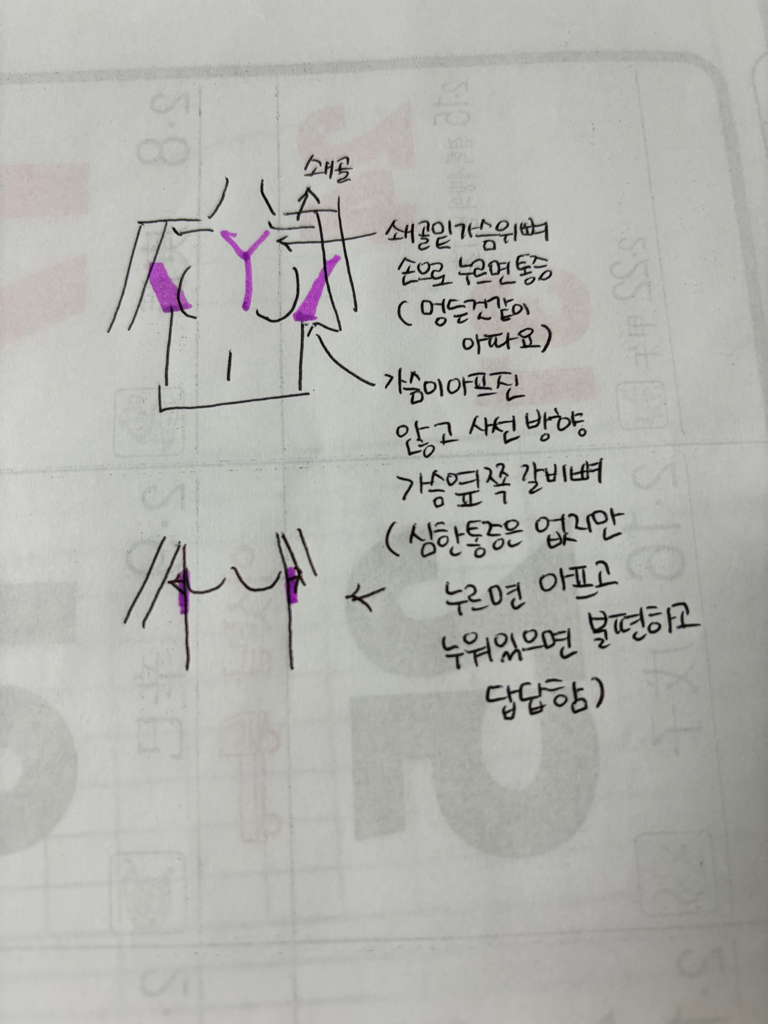 쇄골
쇄골밑가슴위뼈
손으로 누르면통증
(멍든건같이
아파요)
가슴이아프진
않고 사선 방향
가슴옆쪽 갈비뼈
(심한통증은 없지만
누르면 아프고
누워있으면 불편하고
답답함)
2.8
2.15
2.22
2.9
2.16